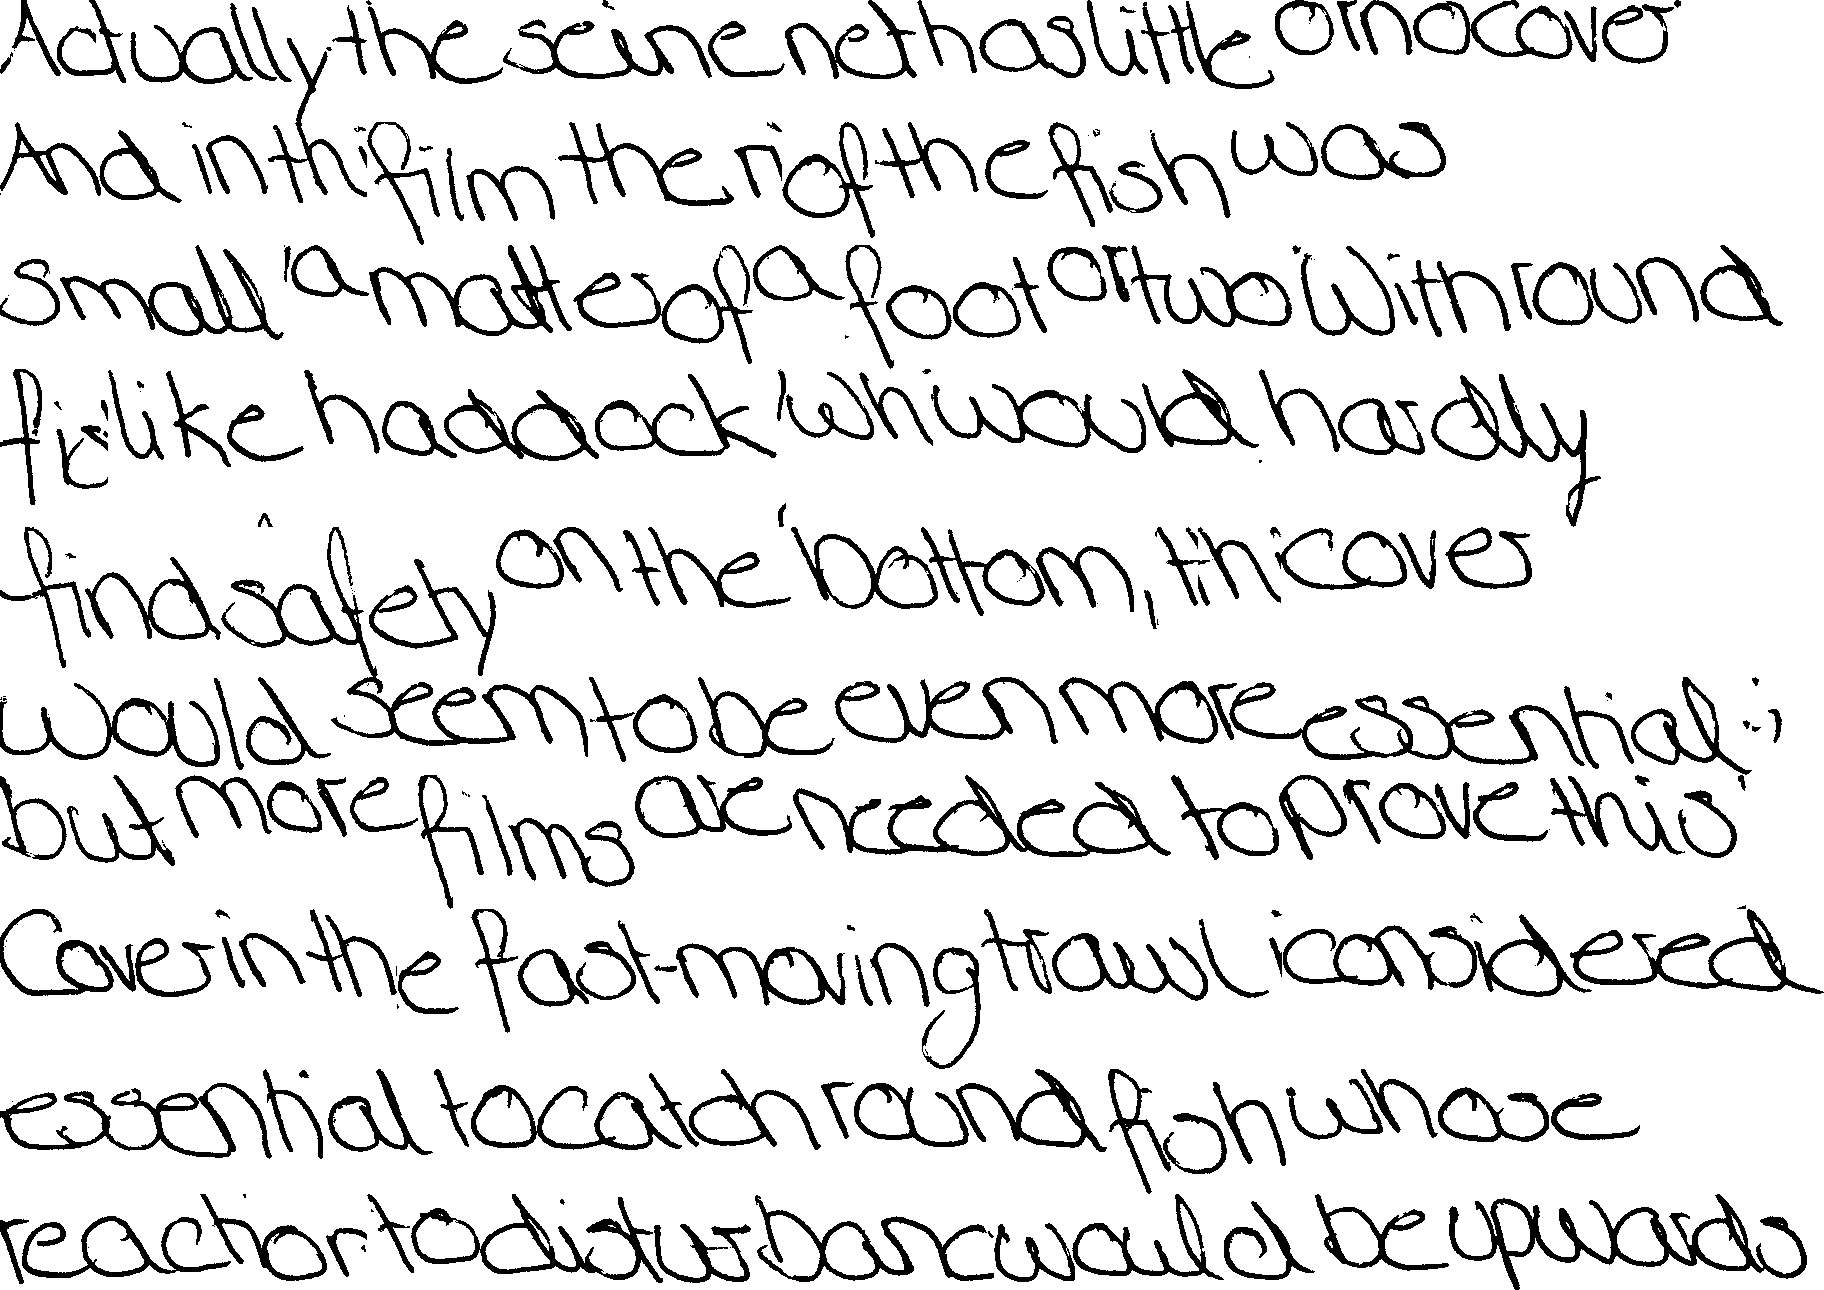 Actually the seine net has little or no cover
And in thi film the ri of the fish was
small a matter of a foot or two With round
fis like haddock whi would hardly
find safety on the bottom, thi cover
would seem to be even more essential ;
but more films are needed to prove this
Cover in the fast-moving trawl i considered
essential to catch round fish whose
reactior to disturbanc would be upwards